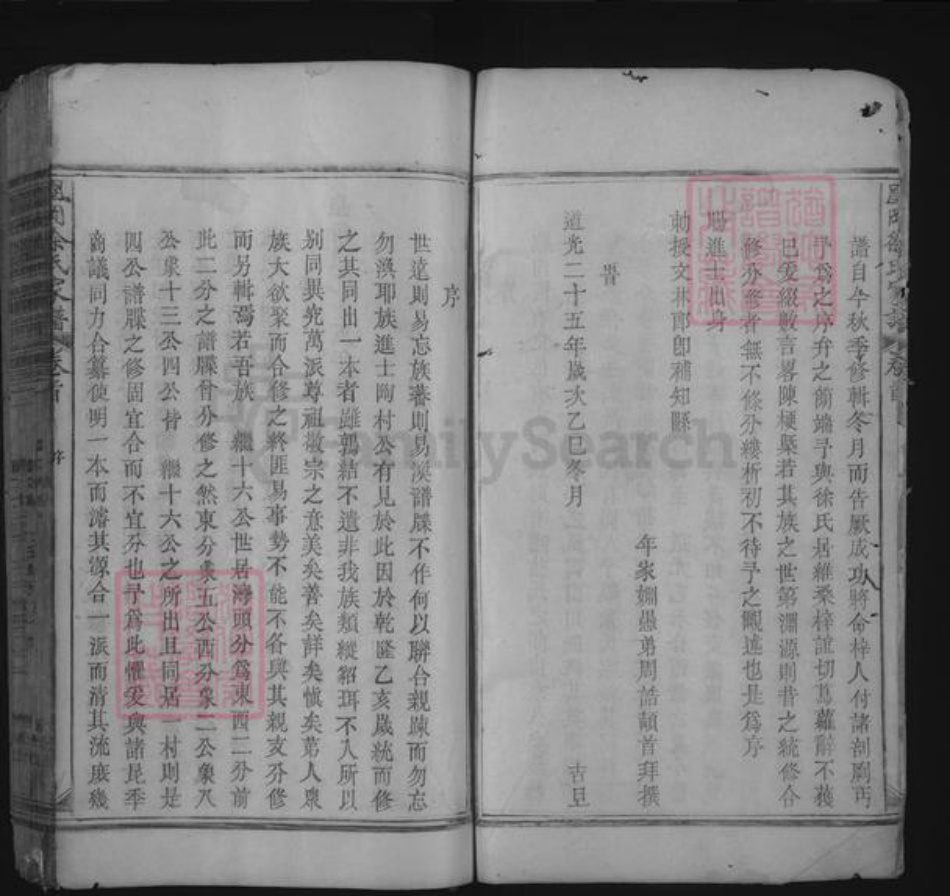 譜自今秋季修輯冬月而告厥成功將命梓人付諸剞劂丐
予爲之序弁之簡端予與徐氏居維桑梓誼切蔦蘿辭不獲
已爰綴數言畧陳梗槩若其族之世第淵源則昔之統修合
修分修者無不條分縷析初不待予之覼述也是爲序
賜進士出身
勅授文林郎卽補知縣
年家姻愚弟周誥頓首拜撰
旹
道光二十五年歲次乙巳冬月 吉旦
序
世遠則易忘族蕃則易渙譜牒不作何以聯合親踈而勿忘
勿渙耶族進士陶村公有見於此因於乾隆乙亥歲統而修
之其同出一本者雖郭結不遺非我族類縱貂珥不入所以
别同異究萬派尊祖敬宗之意美矣善矣詳矣愼矣第人衆
族大欲聚而合修之終匪易事勢不能不各與其親支分修
而另輯焉若吾族 繼十六公世居灣頭分爲東西二分前
此二分之譜牒曾分修之然東分象五公西分象二公象八
公象十三公四公皆 繼十六公之所出且同居一村則是
四公譜牒之修固宜合而不宜分也予爲此懼爰與諸昆季
商議同力合纂使明一本而濬其源合一派而清其流庶幾
徐氏家譜
卷首
序
FamilySearch